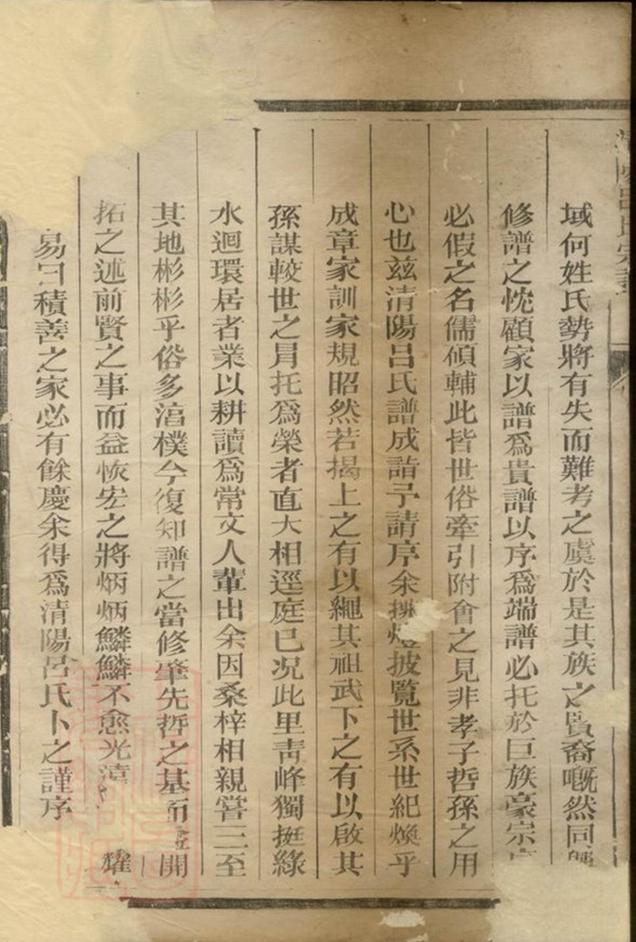 呂氏宗譜
域何姓氏勢將有失而難考之虞於是其族之賢裔嘅然同興
修譜之忱顧家以譜爲貴譜以序爲端譜必托於巨族豪宗
必假之名儒傾輔此皆世俗牽引附會之見非孝子哲孫之用
心也兹清陽呂氏譜成詣予請序余挑燈披覽世系世紀煥乎
成章家訓家規昭然若揭上之有以繩其祖武下之有以啟其
孫謀較世之冒托爲榮者直大相逕庭已况此里靑峰獨挺綠
水迴環居者業以耕讀爲常文人輩出余因桑梓相親嘗三至
其地彬彬乎俗多湻樸今復知譜之當修肇先哲之基而開
拓之述前賢之事而益恢宏之將炳炳鱗鱗不愈光 耀
易曰積善之家必有餘慶余得爲清陽呂氏卜之謹序